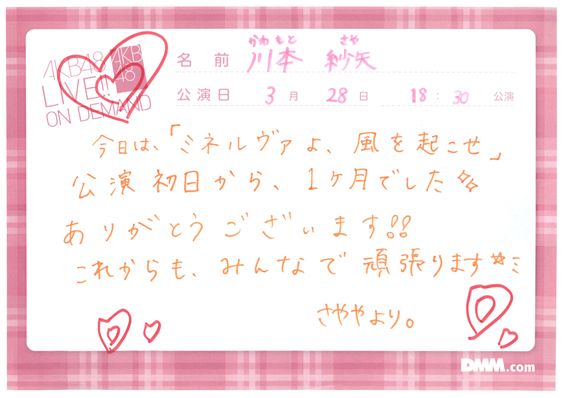 AKB48
LIVE!!
ON DEMAND
AKB
48
かわもと さや
名前 川本 紗矢
公演日 3月 28日 18:30 公演
今日は、「ミネルヴァよ、風を起こせ」
公演初日から、1ヶ月でした
ありがとうございます!!
これからも、みんなで頑張ります☆ミ
さややより。
DMM.com